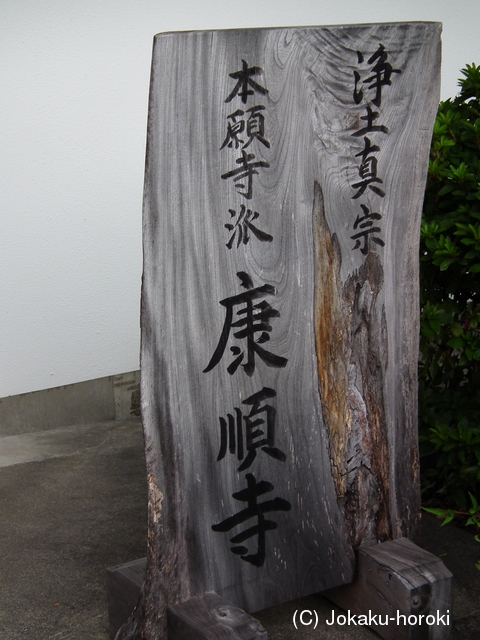 浄土真宗
本願寺派 康順寺
(C) Jokaku-horoki